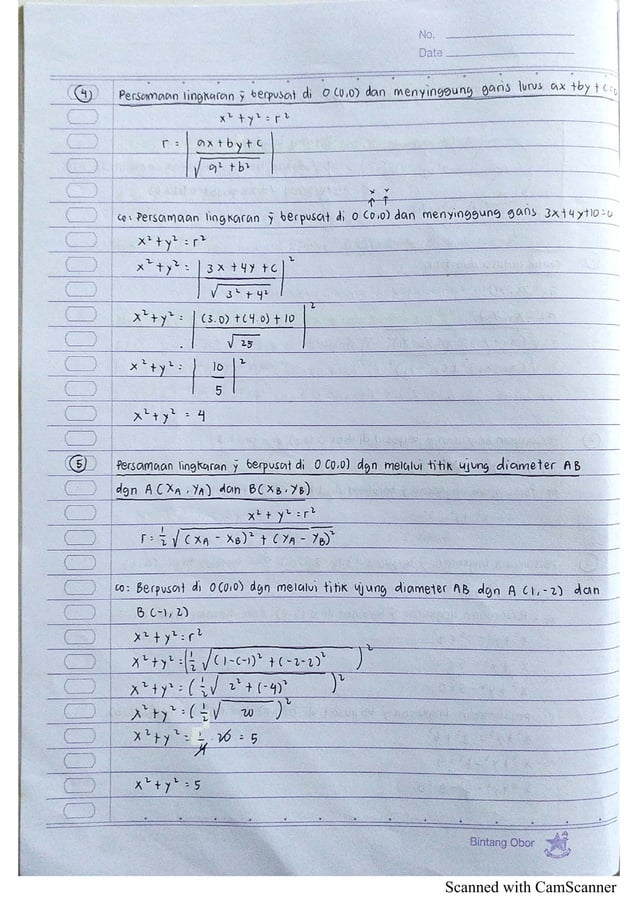 No.
Date
④ Persamaan lingkaran ÿ berpusat di O (0,0) dan menyinggung garis lurus ax + by + c = 0
x² + y² = r²
r = | (ax + by + c) / √(a² + b²) |
x y
↑ ↑
co: Persamaan lingkaran ÿ berpusat di O (0,0) dan menyinggung garis 3x+4y+10=0
x² + y² = r²
x² + y² = | (3x + 4y + c) / √(3² + 4²) |²
x² + y² = | ((3.0) + (4.0) + 10) / √25 |²
x² + y² = | 10 / 5 |²
x² + y² = 4
⑤ Persamaan lingkaran ÿ berpusat di O (0,0) dgn melalui titik ujung diameter AB
dgn A (xA, yA) dan B (xB, yB)
x² + y² = r²
r = ½ √((xA - xB)² + (yA - yB)²)
co: Berpusat di O(0,0) dgn melalui titik ujung diameter AB dgn A (1,-2) dan
B (-1, 2)
x² + y² = r²
x² + y² = (½ √((1-(-1)² + (-2-2)²)²
x² + y² = (½ √(2² + (-4)²))²
x² + y² = (½ √20)²
x² + y² = 1/4 . 20 = 5
x² + y² = 5
Bintang Obor
Scanned with CamScanner